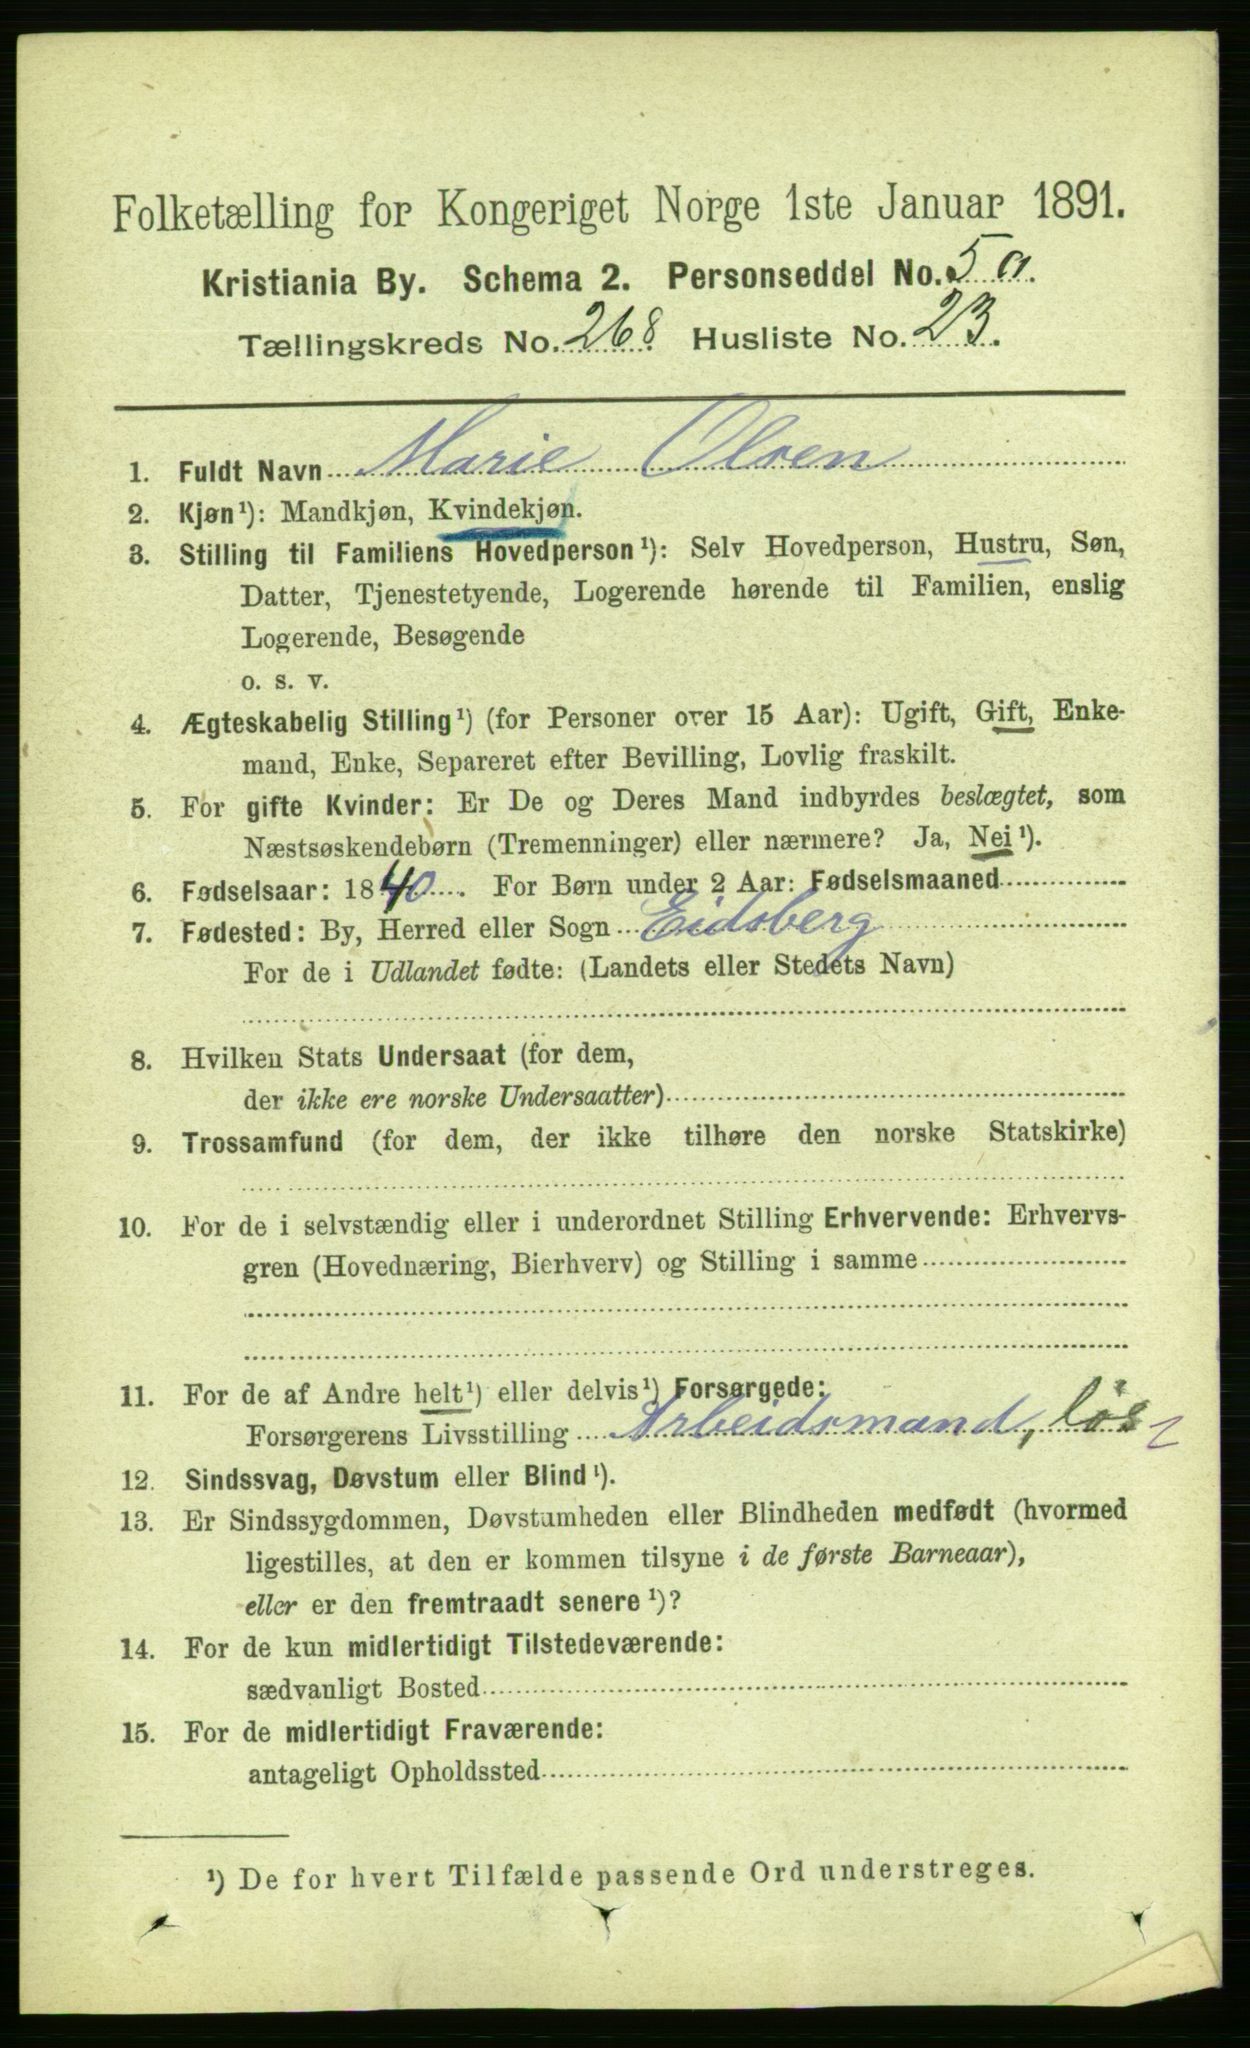 Folketælling for Kongeriget Norge 1ste Januar 1891.
Kristiania By. Schema 2. Personseddel No. 5 a.
Tællingskreds No. 268 Husliste No. 23.
1. Fuldt Navn Marie Olsen
2. Kjøn¹): Mandkjøn, Kvindekjøn.
3. Stilling til Familiens Hovedperson¹): Selv Hovedperson, Hustru, Søn,
Datter, Tjenestetyende, Logerende hørende til Familien, enslig
Logerende, Besøgende
o. s. v.
4. Ægteskabelig Stilling¹) (for Personer over 15 Aar): Ugift, Gift, Enke-
mand, Enke, Separeret efter Bevilling, Lovlig fraskilt.
5. For gifte Kvinder: Er De og Deres Mand indbyrdes beslægtet, som
Næstsøskendebørn (Tremenninger) eller nærmere? Ja, Nei¹).
6. Fødselsaar: 1840. For Børn under 2 Aar: Fødselsmaaned
7. Fødested: By, Herred eller Sogn Eidsberg
For de i Udlandet fødte: (Landets eller Stedets Navn)
8. Hvilken Stats Undersaat (for dem,
der ikke ere norske Undersaatter)
9. Trossamfund (for dem, der ikke tilhøre den norske Statskirke)
10. For de i selvstændig eller i underordnet Stilling Erhvervende: Erhvervs-
gren (Hovednæring, Bierhverv) og Stilling i samme
11. For de af Andre helt¹) eller delvis¹) Forsørgede:
Forsørgerens Livsstilling Arbeidsmand, løs
12. Sindssvag, Døvstum eller Blind¹).
13. Er Sindssygdommen, Døvstumheden eller Blindheden medfødt (hvormed
ligestilles, at den er kommen tilsyne i de første Barneaar),
eller er den fremtraadt senere¹)?
14. For de kun midlertidigt Tilstedeværende:
sædvanligt Bosted
15. For de midlertidigt Fraværende:
antageligt Opholdssted
¹) De for hvert Tilfælde passende Ord understreges.